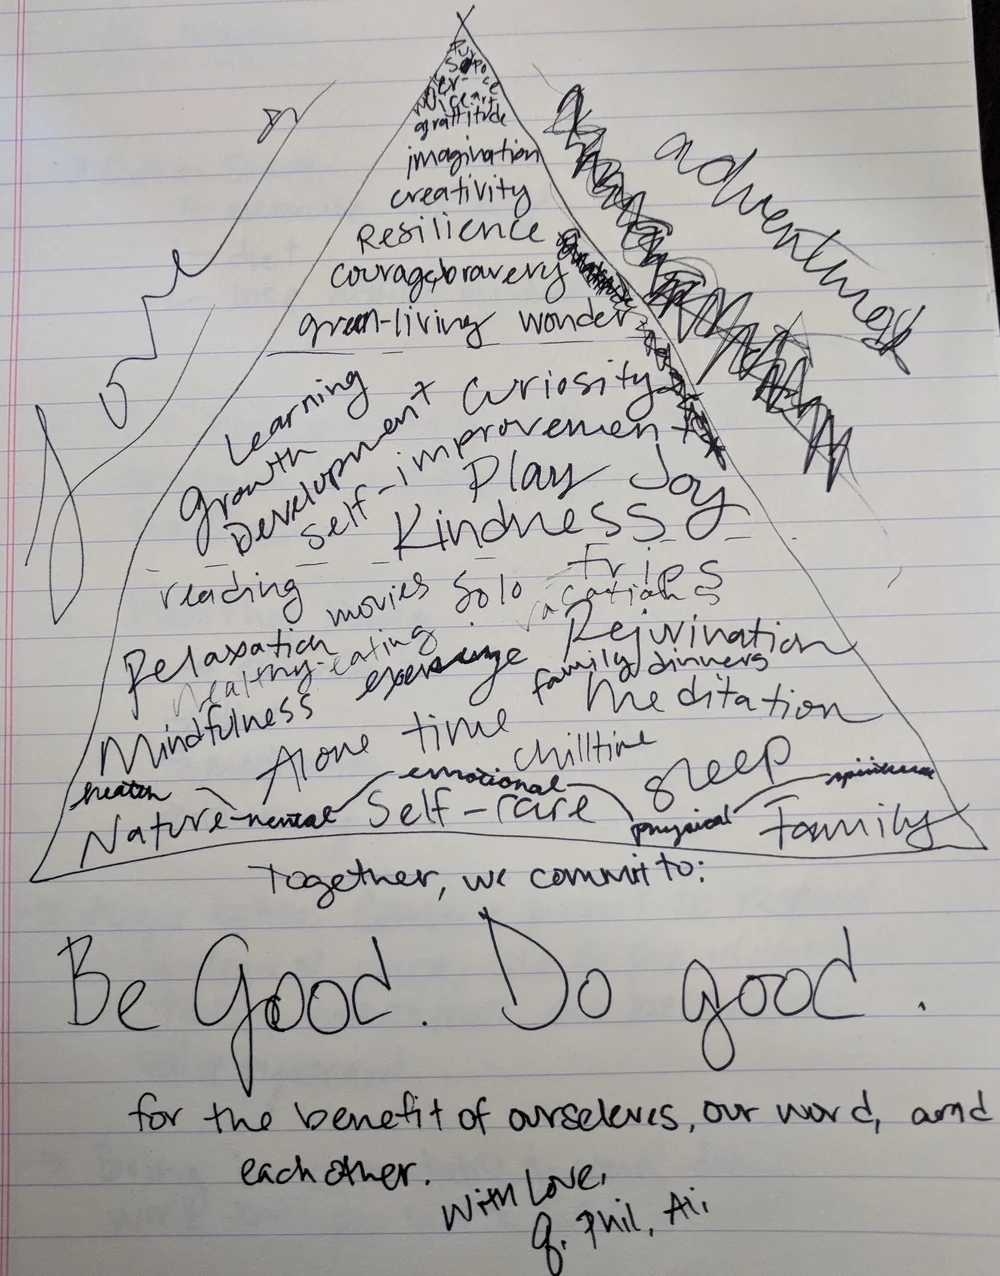 purpo
se
ser-
vice art
grattitude
imagination
creativity
Resilience
courage, bravery
green-living wonder
Learning
Growth
Development Curiosity
self-improvement
Play Joy
Kindness
reading movies Solo trips
vacations
Relaxation healthy-eating Rejuvination
Mindfulness exercise family dinners
Alone time meditation
chilltime
sleep
heatth emotional spiritual
Nature mental Self-care physical Family
Journey
adventures
Together, we commit to:
Be Good. Do good.
for the benefit of ourselves, our word, and
each other.
With Love,
Q, Phil, Ali